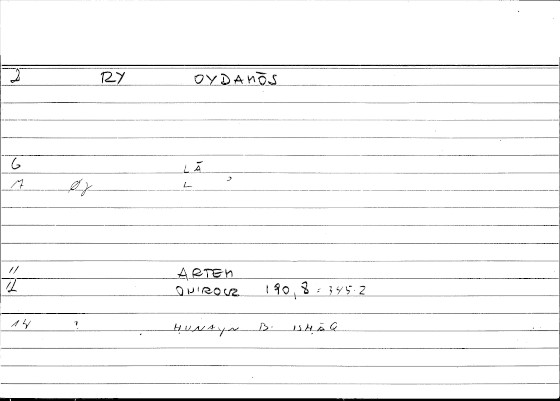 2 RY OYDAMŌS
6 LĀ
7 Øy L ,
11 ARTEM
12 190,8 = 345.2
14 ? HUNAYN B. ISHĀQ